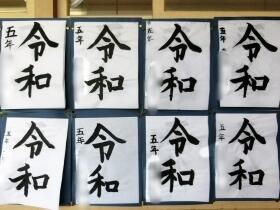 令和
五年
令和
五年
令和
五年
令和
五年
令和
五年
令和
五年
令和
五年
令和
五年